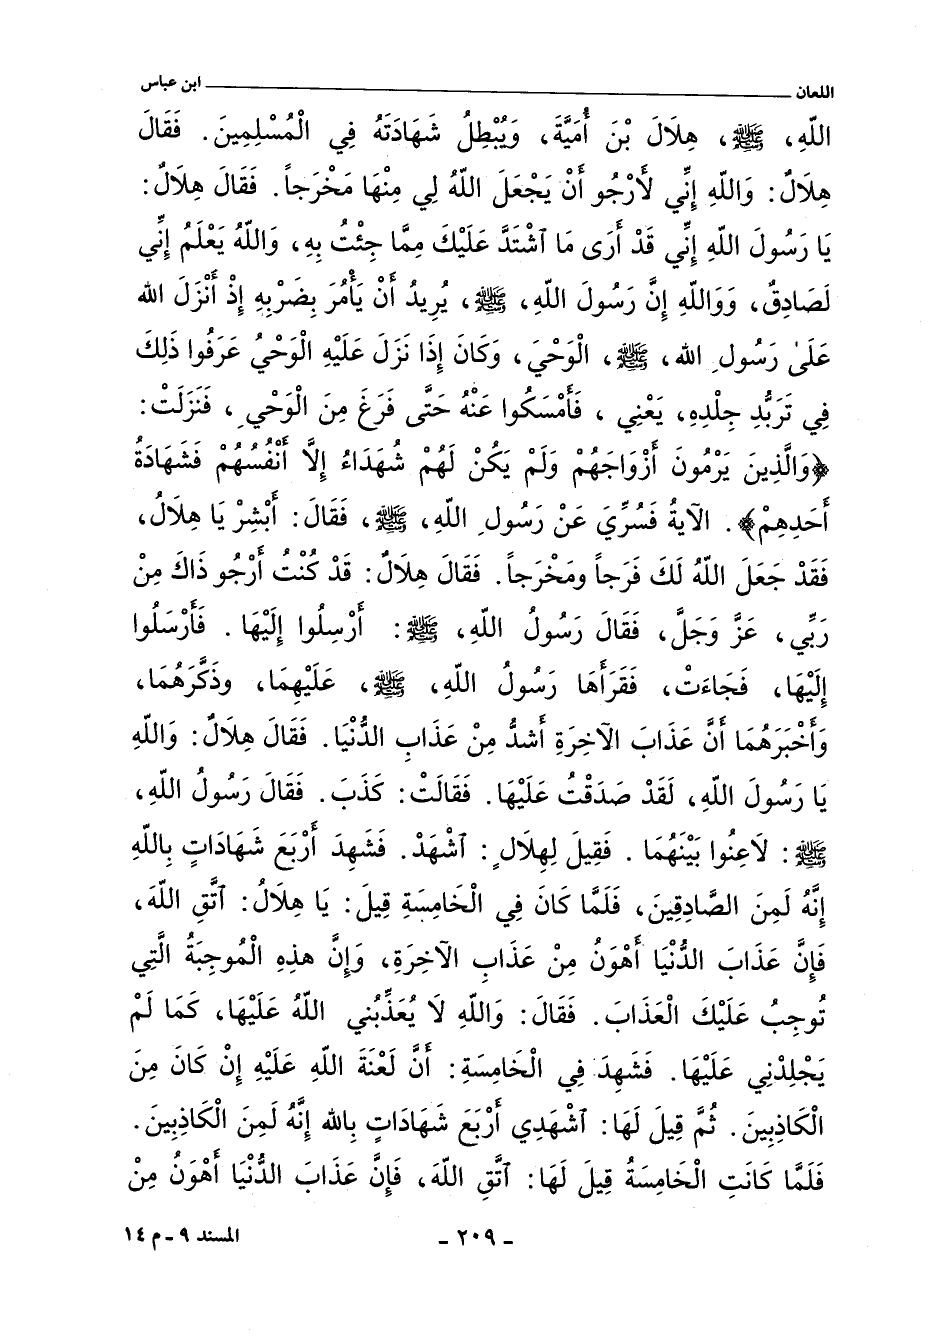 اللعان ــــــ ابن عباس
اللّهِ، ﷺ، هِلَالَ بْنَ أُمَيَّةَ، وَيُبْطِلُ شَهَادَتَهُ فِي الْمُسْلِمِينَ. فَقَالَ
هِلَالٌ: وَاللّهِ إِنِّي لَأَرْجُو أَنْ يَجْعَلَ اللّهُ لِي مِنْهَا مَخْرَجاً. فَقَالَ هِلَالٌ:
يَا رَسُولَ اللّهِ إِنِّي قَدْ أَرَى مَا ٱشْتَدَّ عَلَيْكَ مِمَّا جِئْتُ بِهِ، وَاللّهُ يَعْلَمُ إِنِّي
لَصَادِقٌ، وَوَاللّهِ إِنَّ رَسُولَ اللّهِ، ﷺ، يُرِيدُ أَنْ يَأْمُرَ بِضَرْبِهِ إِذْ أَنْزَلَ الله
عَلَىٰ رَسُولِ الله، ﷺ، الْوَحْيَ، وَكَانَ إِذَا نَزَلَ عَلَيْهِ الْوَحْيُ عَرَفُوا ذٰلِكَ
فِي تَرَبُّدِ جِلْدِهِ، يَعْنِي، فَأَمْسَكُوا عَنْهُ حَتَّى فَرَغَ مِنَ الْوَحْيِ، فَنَزَلَتْ:
﴿وَالَّذِينَ يَرْمُونَ أَزْوَاجَهُمْ وَلَمْ يَكُنْ لَهُمْ شُهَدَاءُ إِلَّا أَنْفُسُهُمْ فَشَهَادَةُ
أَحَدِهِمْ﴾. الآيةُ فَسُرِّيَ عَنْ رَسُولِ اللّهِ، ﷺ، فَقَالَ: أَبْشِرْ يَا هِلَالُ،
فَقَدْ جَعَلَ اللّهُ لَكَ فَرَجاً ومَخْرَجاً. فَقَالَ هِلَالٌ: قَدْ كُنْتُ أَرْجُو ذَاكَ مِنْ
رَبِّي، عَزَّ وَجَلَّ، فَقَالَ رَسُولُ اللّهِ، ﷺ: أَرْسِلُوا إِلَيْهَا. فَأَرْسَلُوا
إِلَيْهَا، فَجَاءَتْ، فَقَرَأَهَا رَسُولُ اللّهِ، ﷺ، عَلَيْهِمَا، وذَكَّرَهُمَا،
وَأَخْبَرَهُمَا أَنَّ عَذَابَ الآخِرَةِ أَشدُّ مِنْ عَذَابِ الدُّنْيَا. فَقَالَ هِلَالٌ: وَاللّهِ
يَا رَسُولَ اللّهِ، لَقَدْ صَدَقْتُ عَلَيْهَا. فَقَالَتْ: كَذَبَ. فَقَالَ رَسُولُ اللّهِ،
ﷺ: لَاعِنُوا بَيْنَهُمَا. فَقِيلَ لِهِلَالٍ: ٱشْهَدْ. فَشَهِدَ أَرْبَعَ شَهَادَاتٍ بِاللّهِ
إِنَّهُ لَمِنَ الصَّادِقِينَ، فَلَمَّا كَانَ فِي الْخَامِسَةِ قِيلَ: يَا هِلَالُ: ٱتَّقِ اللّهَ،
فَإِنَّ عَذَابَ الدُّنْيَا أَهْوَنُ مِنْ عَذَابِ الآخِرَةِ، وَإِنَّ هذِهِ الْمُوجِبَةُ الَّتِي
تُوجِبُ عَلَيْكَ الْعَذَابَ. فَقَالَ: وَاللّهِ لَا يُعَذِّبُنِي اللّهُ عَلَيْهَا، كَمَا لَمْ
يَجْلِدْنِي عَلَيْهَا. فَشَهِدَ فِي الْخَامِسَةِ: أَنَّ لَعْنَةَ اللّهِ عَلَيْهِ إِنْ كَانَ مِنَ
الْكَاذِبِينَ. ثُمَّ قِيلَ لَهَا: ٱشْهَدِي أَرْبَعَ شَهَادَاتٍ بِالله إِنَّهُ لَمِنَ الْكَاذِبِينَ.
فَلَمَّا كَانَتِ الْخَامِسَةُ قِيلَ لَهَا: ٱتَّقِ اللّهَ، فَإِنَّ عَذَابَ الدُّنْيَا أَهْوَنُ مِنْ
ـ ٢٠٩ ـ المسند ٩ ـ م ١٤